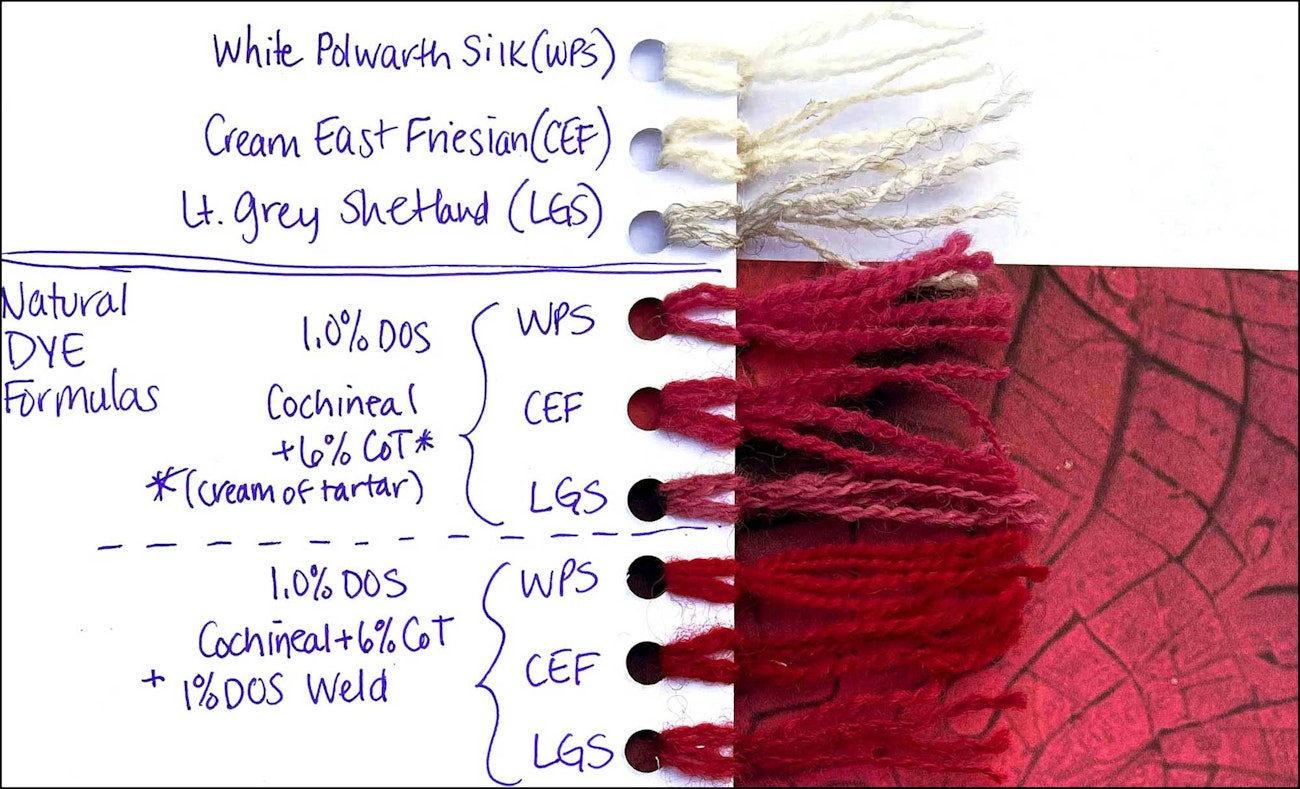 White Polwarth Silk (WPS)
Cream East Friesian (CEF)
Lt. grey Shetland (LGS)
Natural
DYE
Formulas
1.0% DOS
Cochineal
+6% CoT*
*(cream of tartar)
WPS
CEF
LGS
1.0% DOS
Cochineal+6% CoT
+ 1% DOS Weld
WPS
CEF
LGS